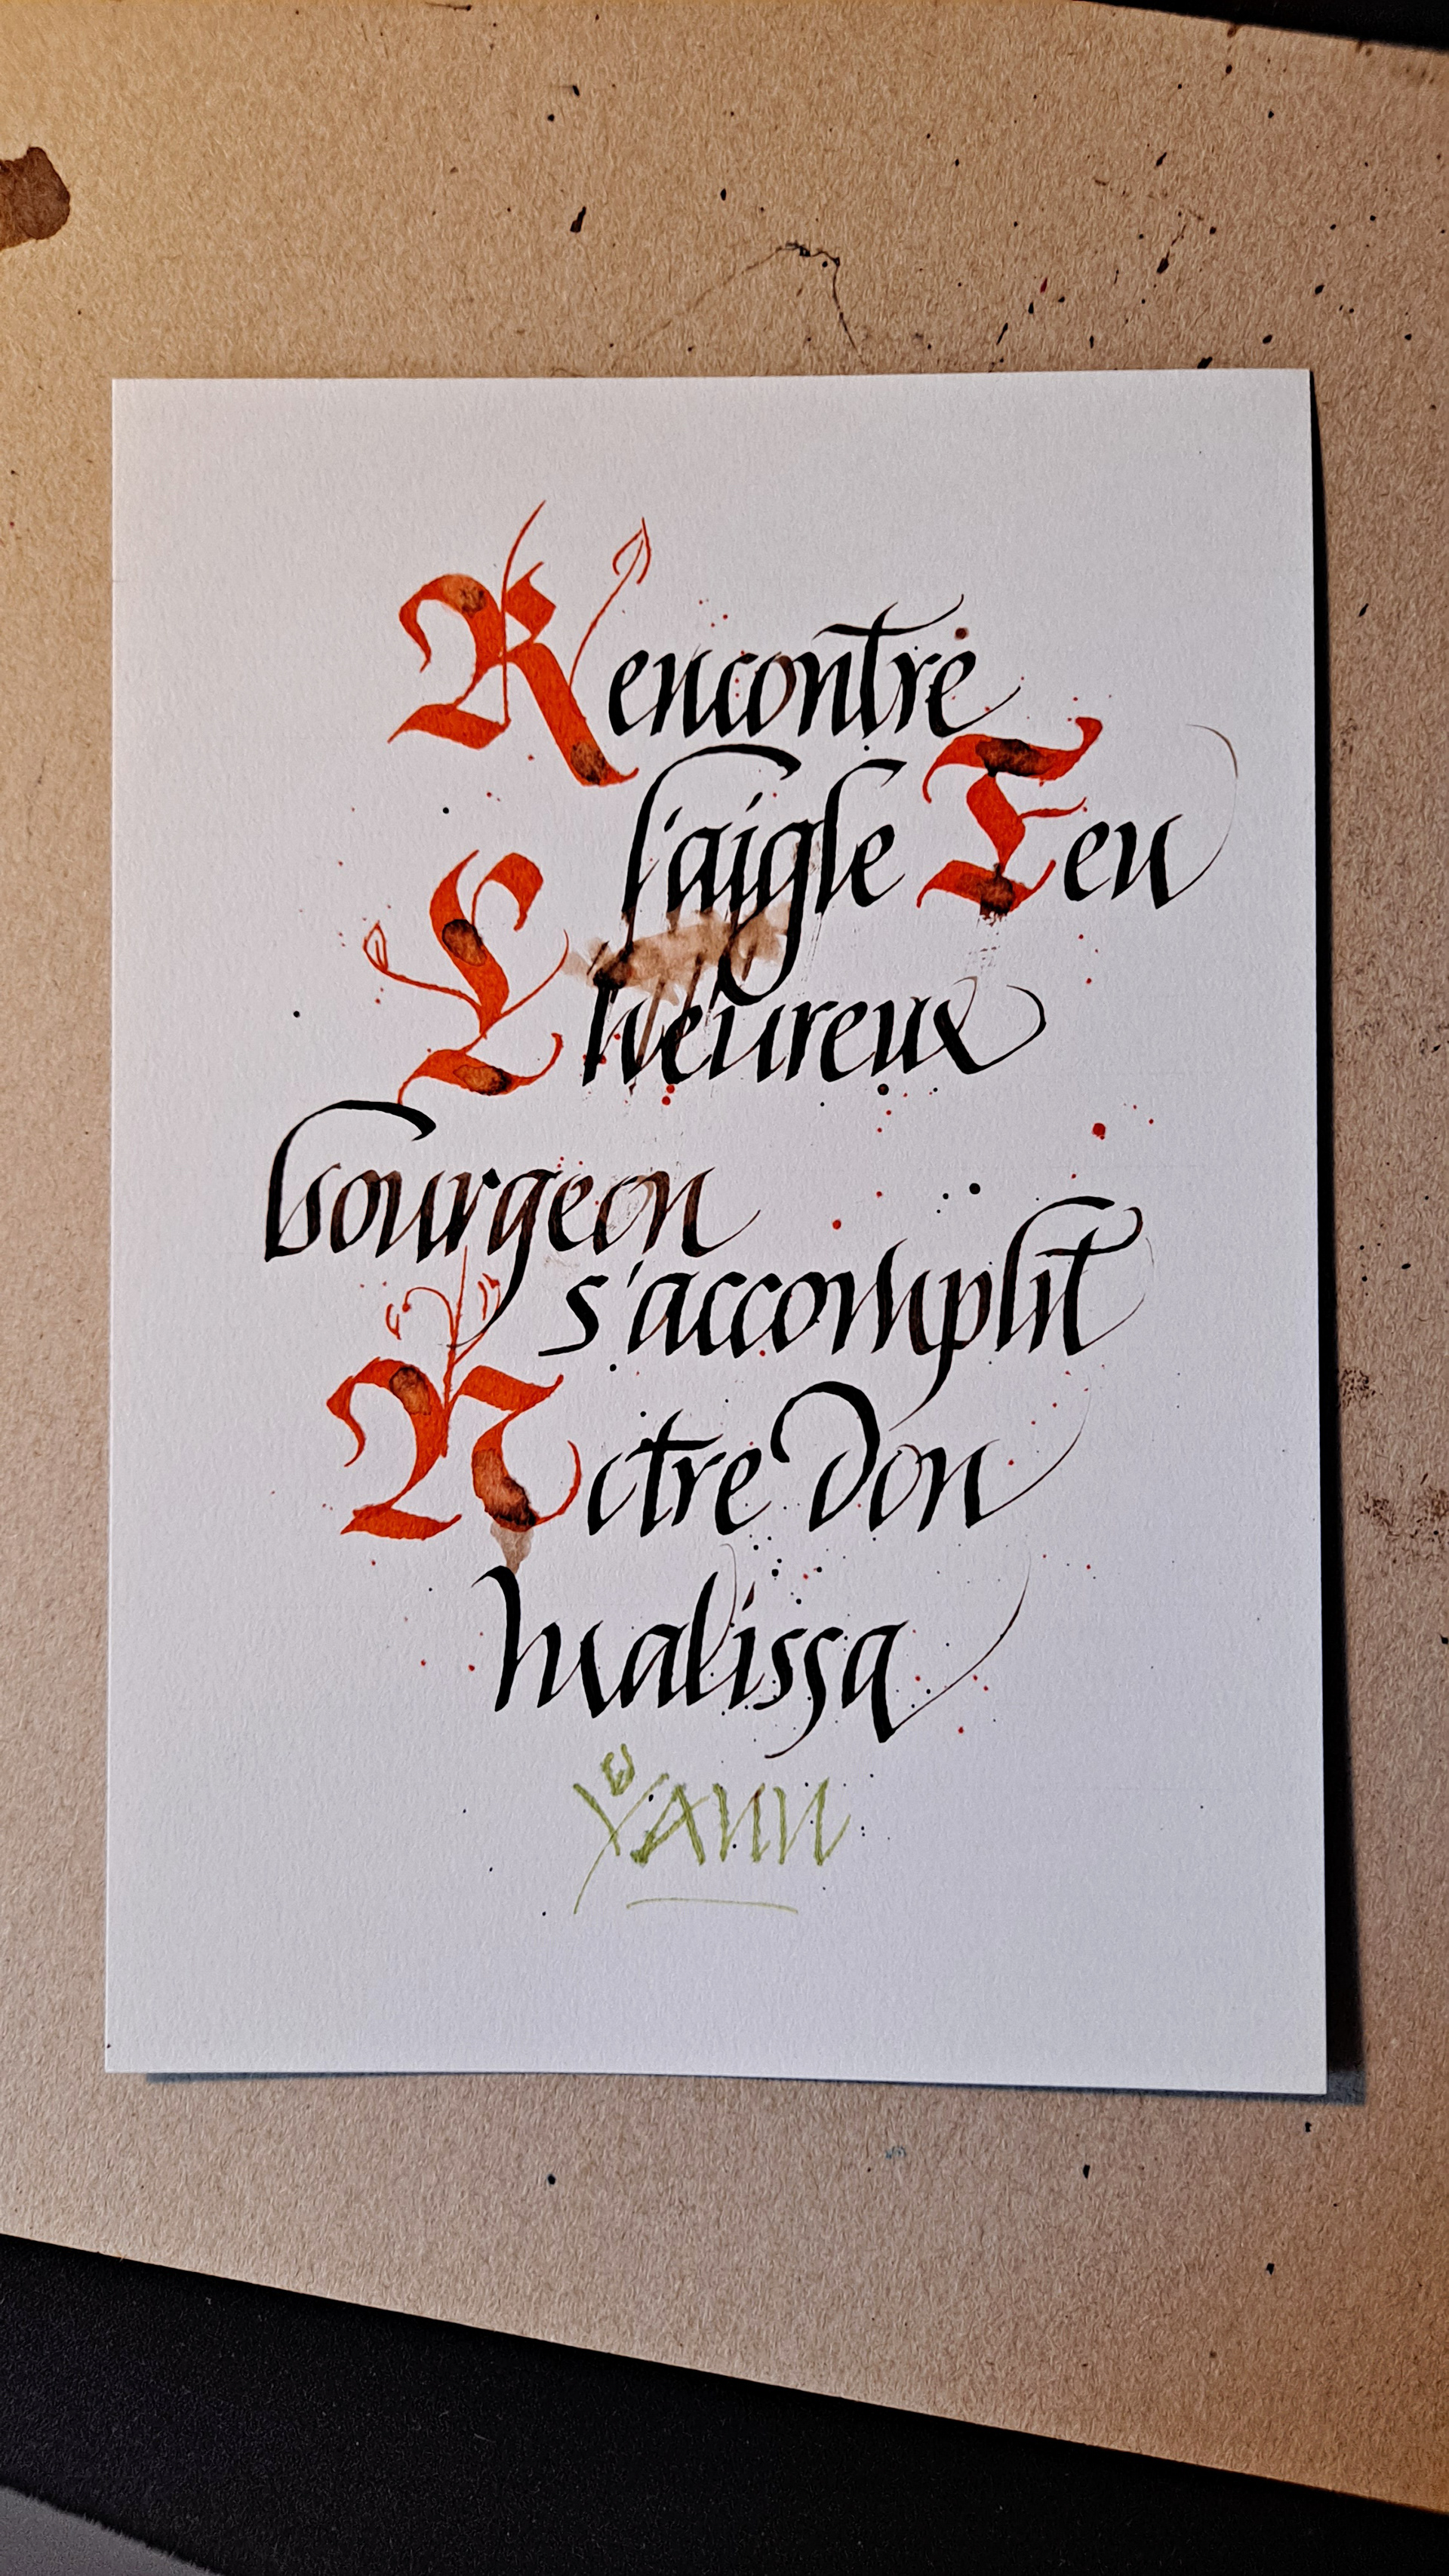 Rencontre
l'aigle Feu
L'heureux
bourgeon
s'accomplit
Notre don
malissa
YANN